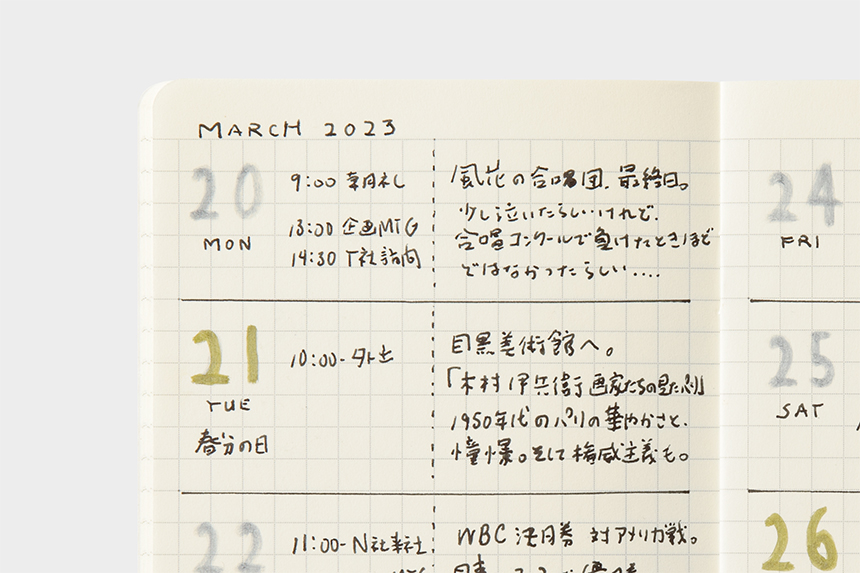 MARCH 2023
20
MON
9:00 朝礼
13:00 企画MTG
14:30 T社訪問
風花の合唱団、最終日。
少し泣いたらしいけれど、
合唱コンクールで負けたときほど
ではなかったらしい....
21
TUE
春分の日
10:00- 外出
目黒美術館へ。
「木村伊兵衛 画家たちの見たパリ」
1950年代のパリの華やかさと、
憧憬。そして権威主義も。
22
11:00- N社来社
WBC 準決勝 対アメリカ戦。
24
FRI
25
SAT
26